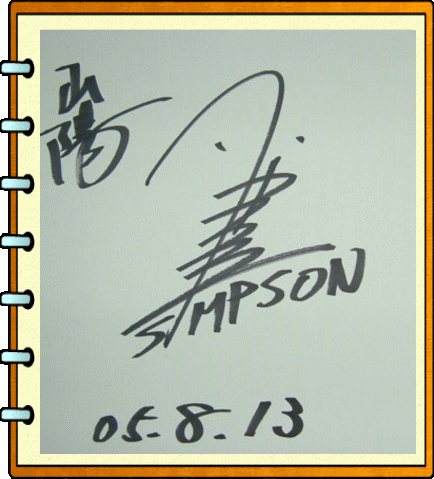 山陽
SIMPSON
05.8.13